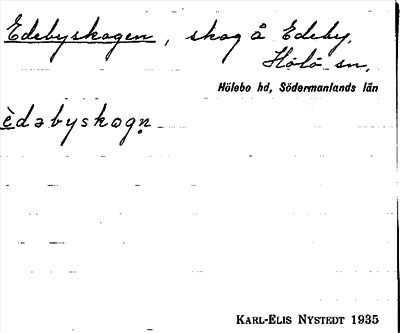 Edebyskogen, skog å Edeby,
Hölö sn,
Hölebo hd, Södermanlands län
èdəbyskogn̥
KARL-ELIS NYSTEDT 1935